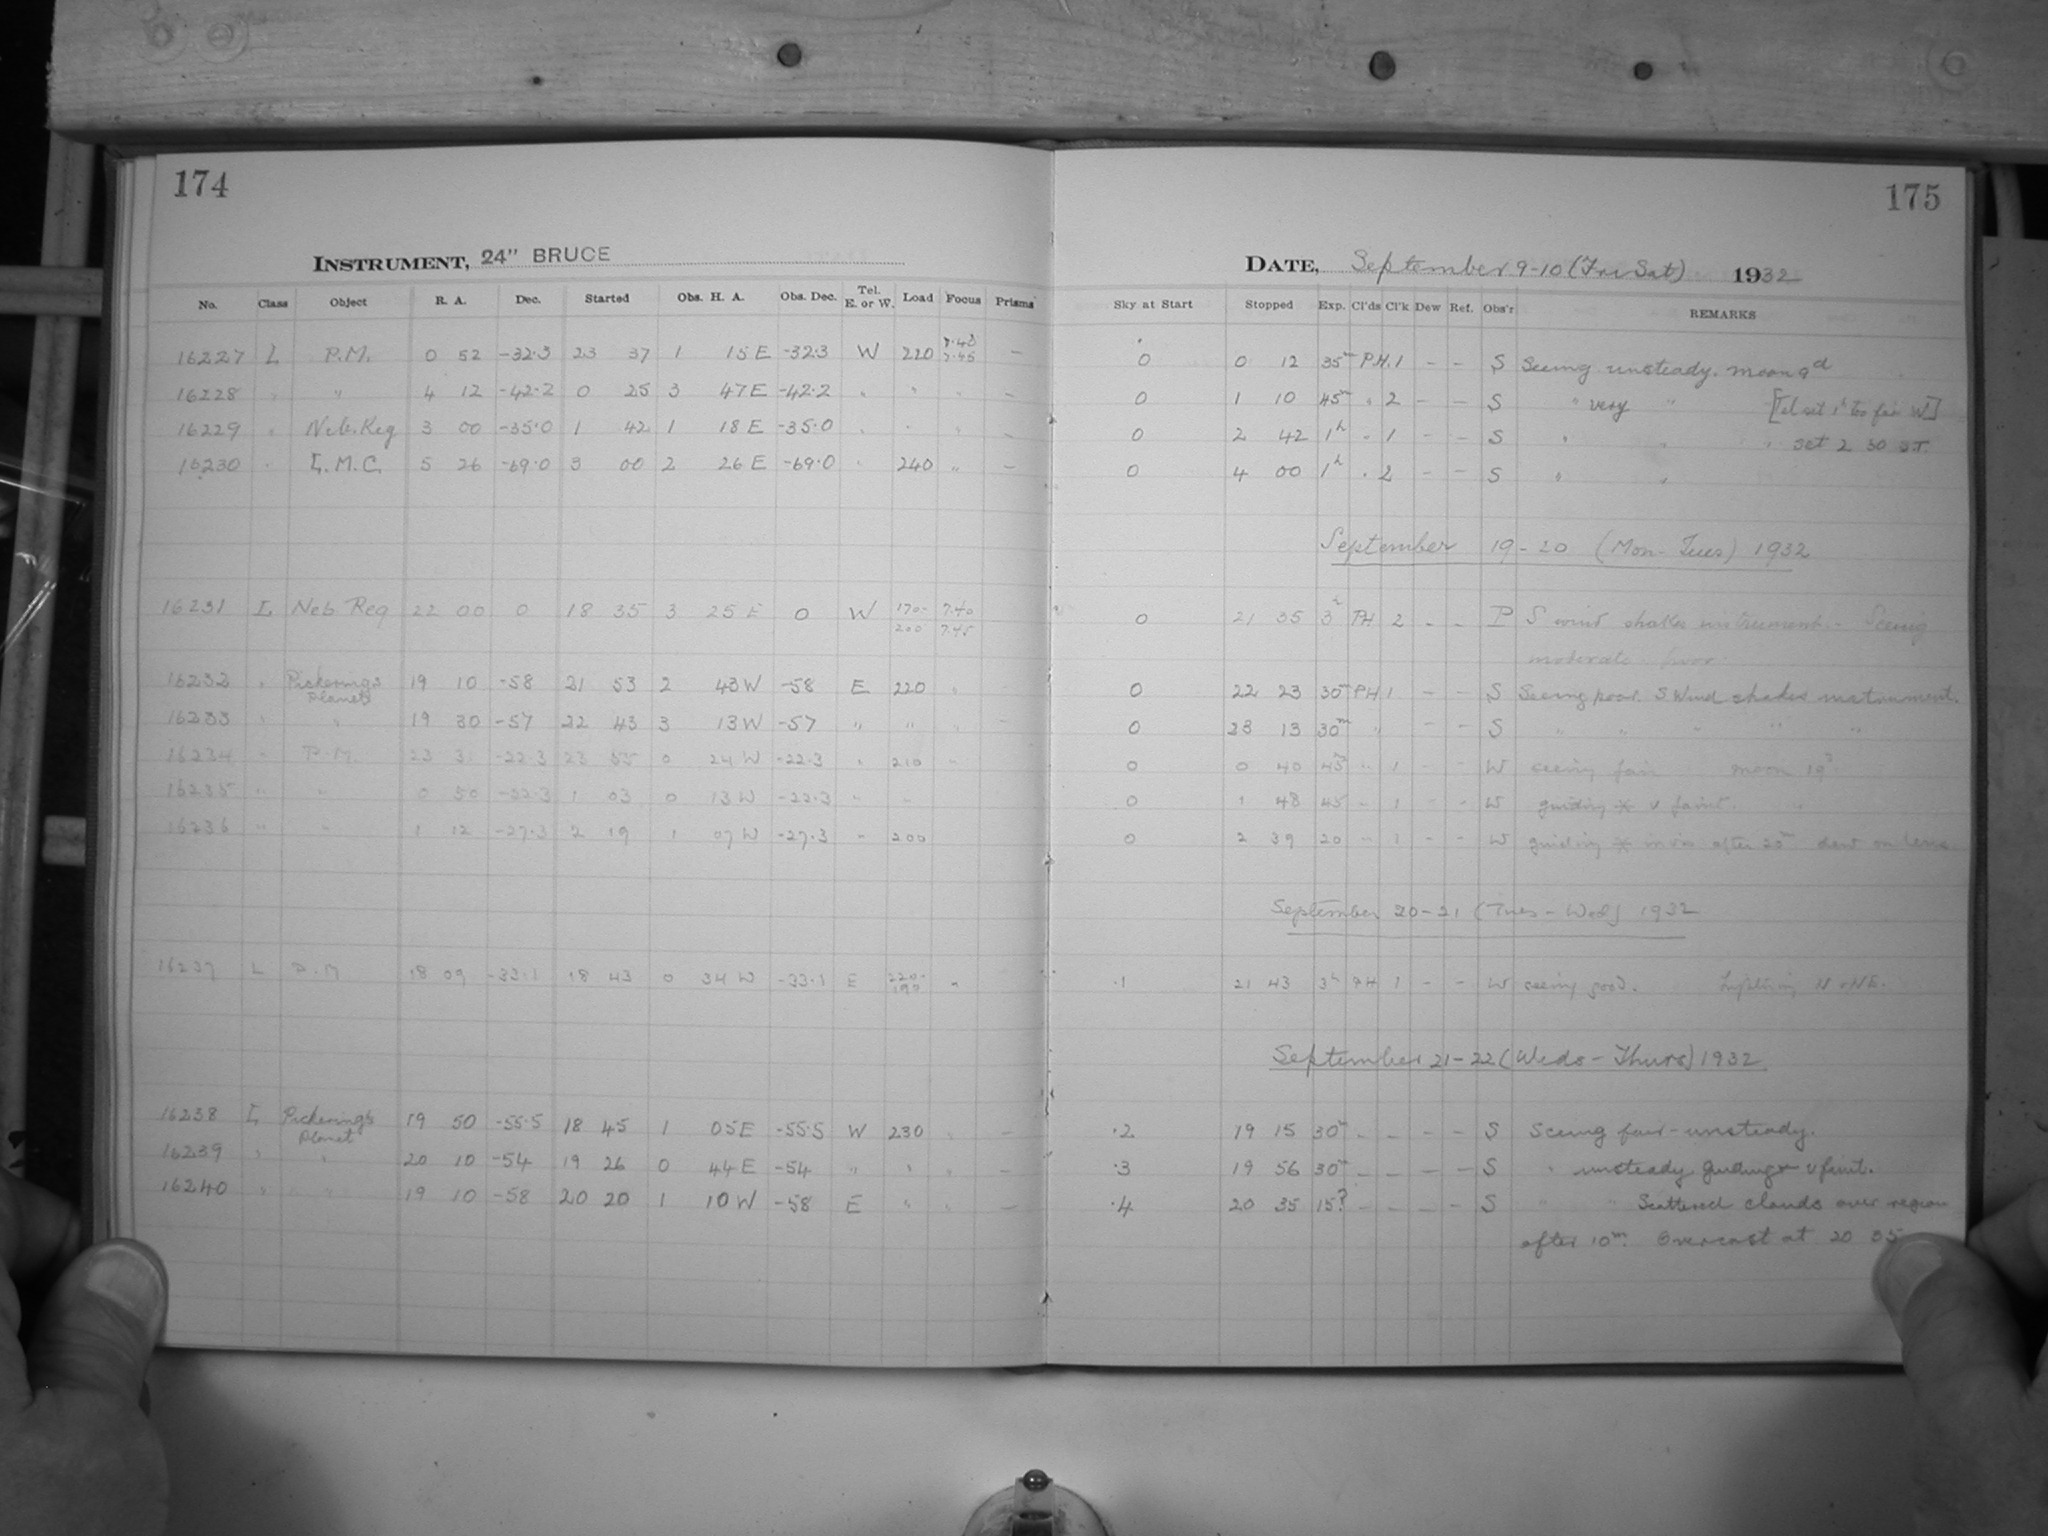 174
INSTRUMENT, 24" BRUCE
No. Class Object R. A. Dec. Started Obs. H. A. Obs. Dec. Tel. E. or W. Load Focus Prisms
16227 L P.M. 0 52 -32.3 23 37 1 15 E -32.3 W 220 7.40 7.45 —
16228 " " 4 12 -42.2 0 25 3 47 E -42.2 " " " —
16229 " Neb. Reg 3 00 -35.0 1 42 1 18 E -35.0 " " " —
16230 " L.M.C. 5 26 -69.0 3 00 2 26 E -69.0 " 240 " —
16231 L Neb Reg 22 00 0 18 35 3 25 E 0 W 170- 200 7.40 7.45
16232 " Pickering's Planet 19 10 -58 21 53 2 43 W -58 E 220 " —
16233 " " 19 30 -57 22 43 3 13 W -57 " " " —
16234 " P.M. 23 31 -22.3 23 55 0 24 W -22.3 " 210 "
16235 " " 0 50 -22.3 1 03 0 13 W -22.3 " "
16236 " " 1 12 -27.3 2 19 1 07 W -27.3 " 200
16237 L P.M 18 09 -33.1 18 43 0 34 W -33.1 E 220- 190 "
16238 L Pickering's Planet 19 50 -55.5 18 45 1 05 E -55.5 W 230 " —
16239 " " 20 10 -54 19 26 0 44 E -54 " " " —
16240 " " 19 10 -58 20 20 1 10 W -58 E " " —
175
DATE, September 9-10 (Fri Sat) 1932
Sky at Start Stopped Exp. Cl'ds Cl'k Dew Ref. Obs'r REMARKS
0 0 12 35m P.H. 1 - - S Seeing unsteady. moon 9d
0 1 10 45m " 2 - - S " very " [Tel set 1h too far W]
0 2 42 1h " 1 - - S " " " set 2 30 S.T.
0 4 00 1h " 2 - - S " "
September 19-20 (Mon-Tues) 1932
0 21 35 3h PH 2 - - P S wind shakes instrument. - Seeing
moderate poor.
0 22 23 30m PH 1 - - S Seeing poor. S Wind shakes instrument.
0 23 13 30m " - - S " " " " "
0 0 40 45 " 1 - - W seeing fair moon 19d
0 1 48 45 " 1 - - W guiding * v faint. "
0 2 39 20 " 1 - - W guiding * invis after 20m dew on lens
September 20-21 (Tues-Wed) 1932
.1 21 43 3h PH 1 - - W seeing good. Lightning N + NE.
September 21-22 (Weds-Thurs) 1932
.2 19 15 30m - - - - S Seeing fair - unsteady.
.3 19 56 30m - - - - S " unsteady guiding * v faint.
.4 20 35 15? - - - - S " " Scattered clouds over region
after 10m. Overcast at 20 35